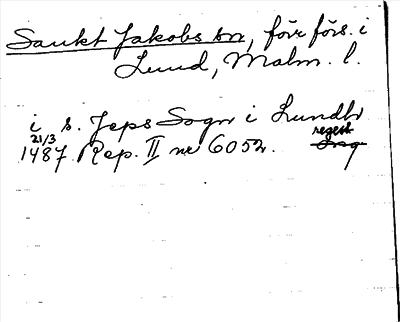 Sankt Jakobs sn, förr förs. i
Lund, Malm. l.
i s. Jeps Sogn i Lundh
21/3 regest
1487. Rep. II nr 6052.